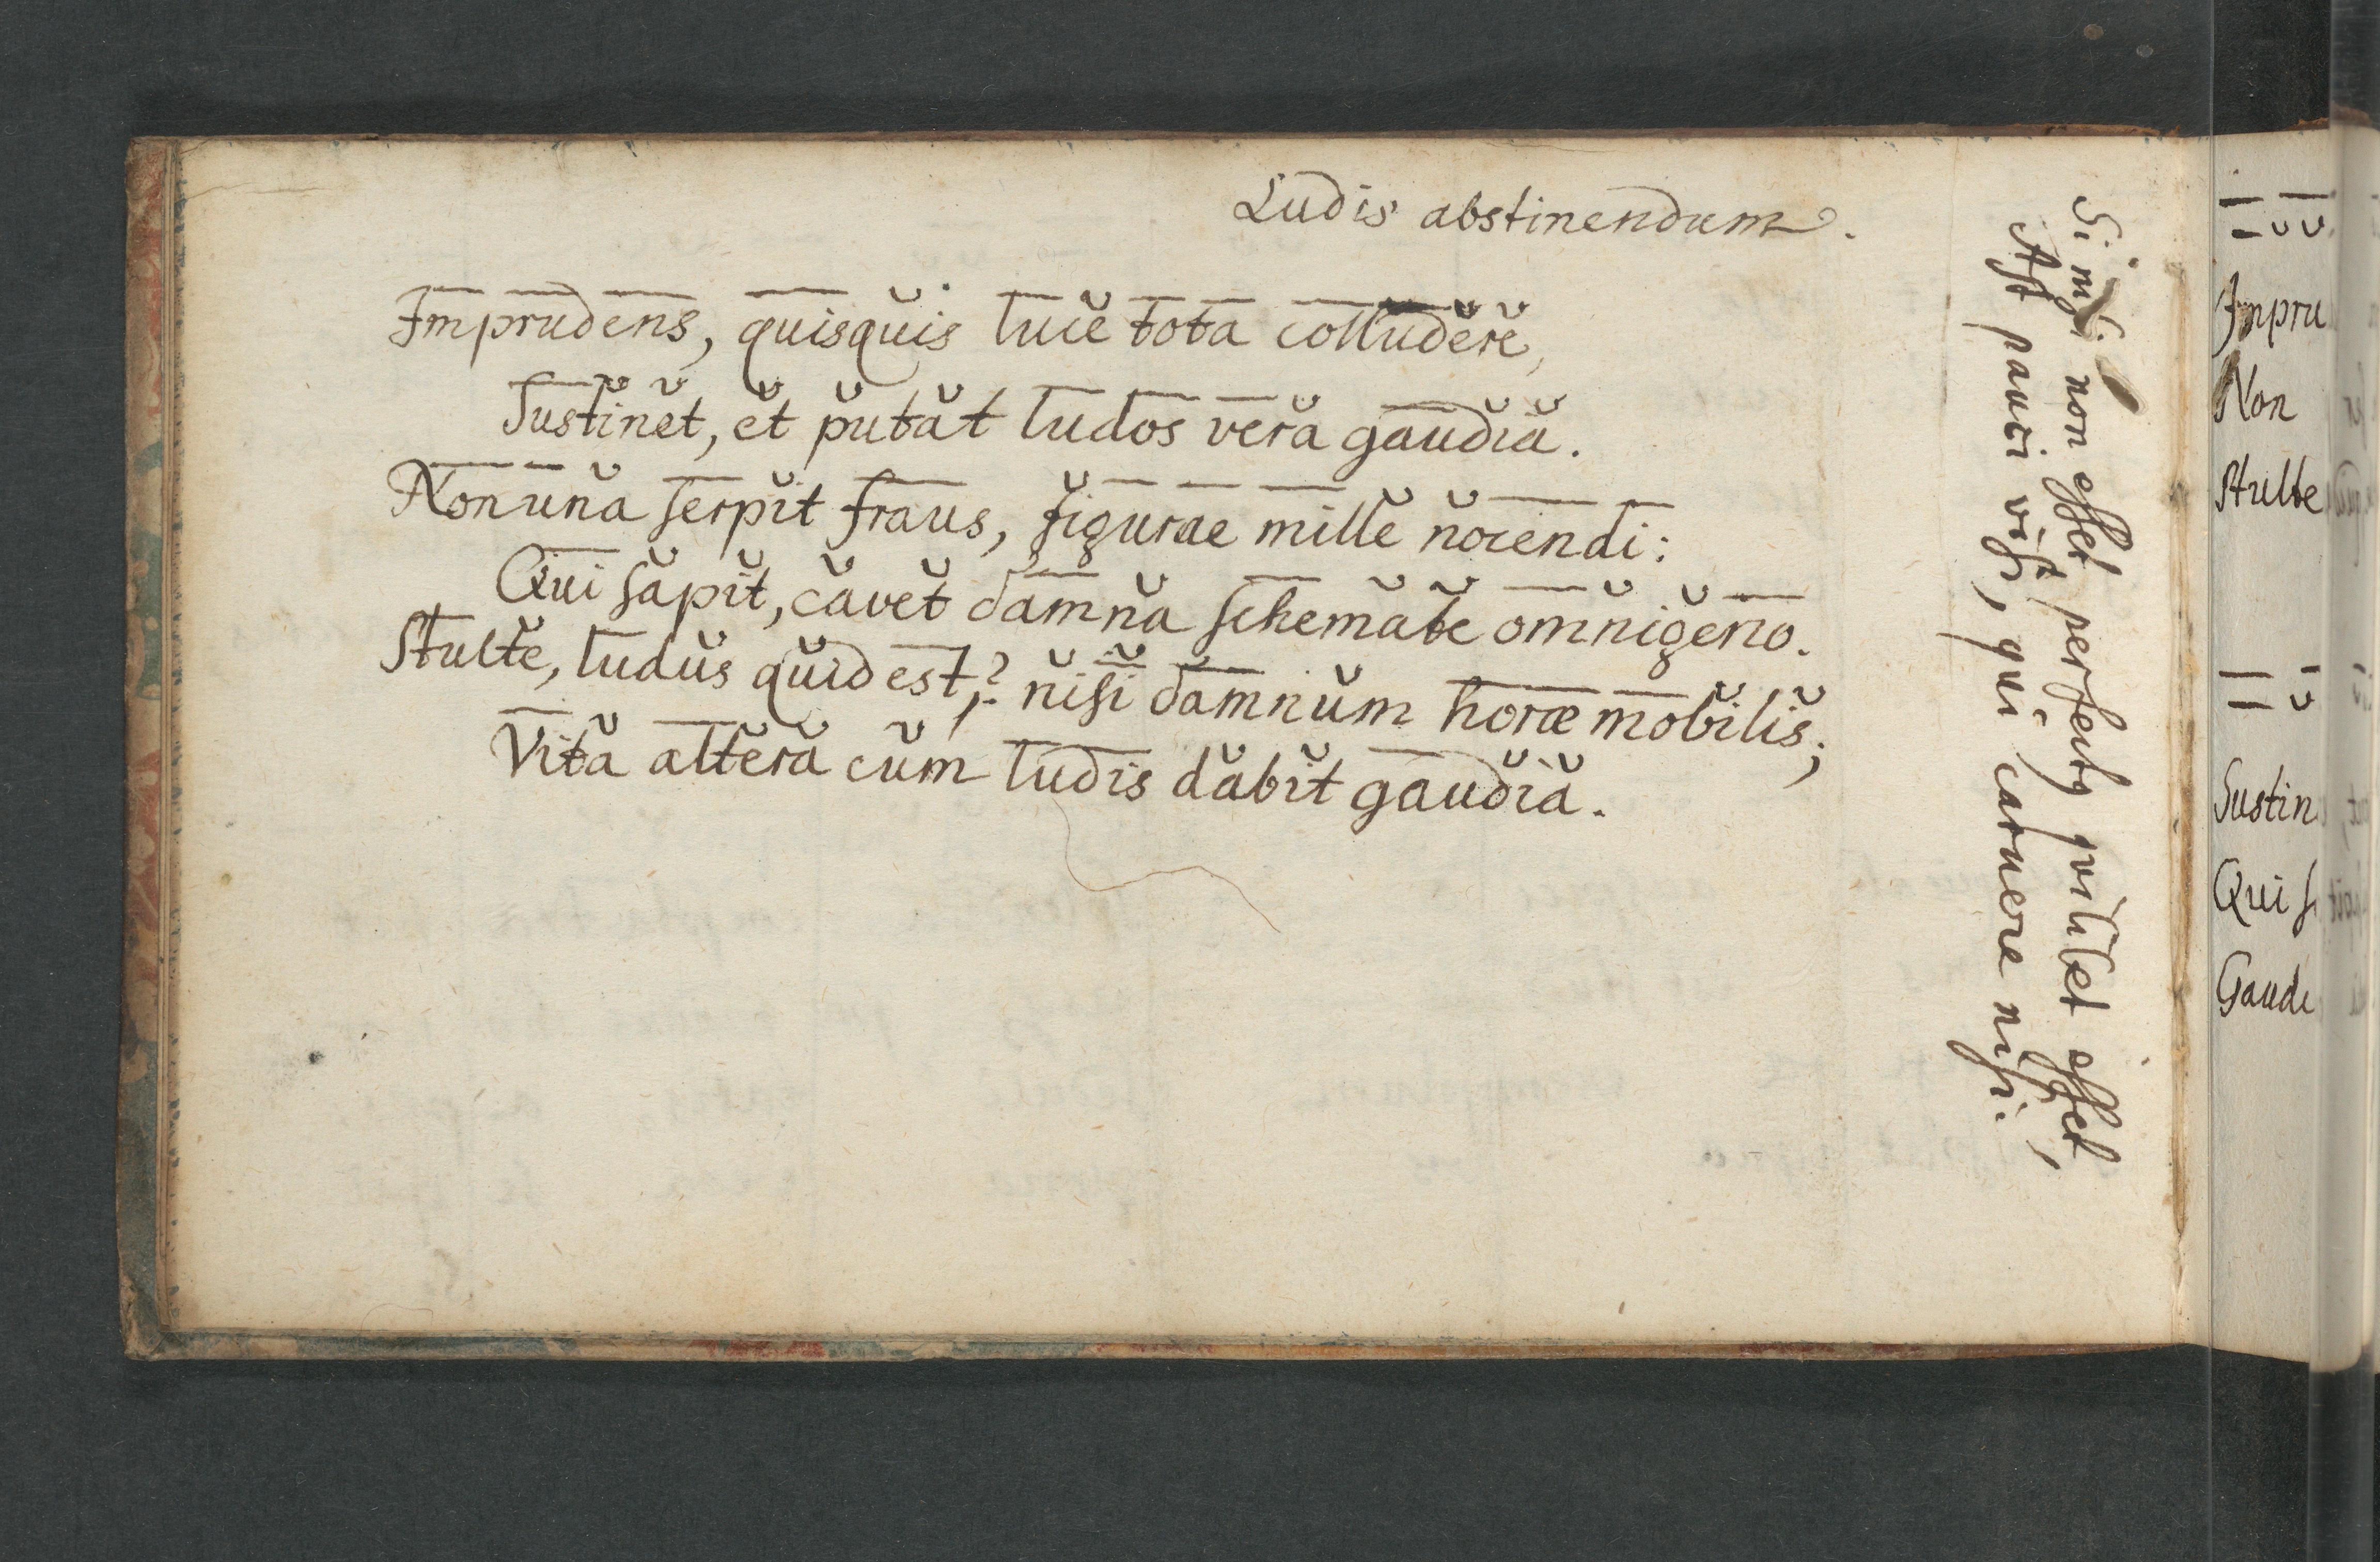 Ludis abstinendum.
Imprudens, quisquis luce tota colludere,
Sustinet, et putat ludos vera gaudia.
Non una serpit fraus, figurae mille nocendi:
Qui sapit, cavet damna schemate omnigeno.
Stulte, ludus quid est,? nisi damnum horæ mobilis;
Vita altera cum ludis dabit gaudia.
Si nisi non esset perfectq quilibet esset,
Ast pauci visi, qui caruere nisi.
Impru
Non
Stulte
Sustin
Qui s
Gaude